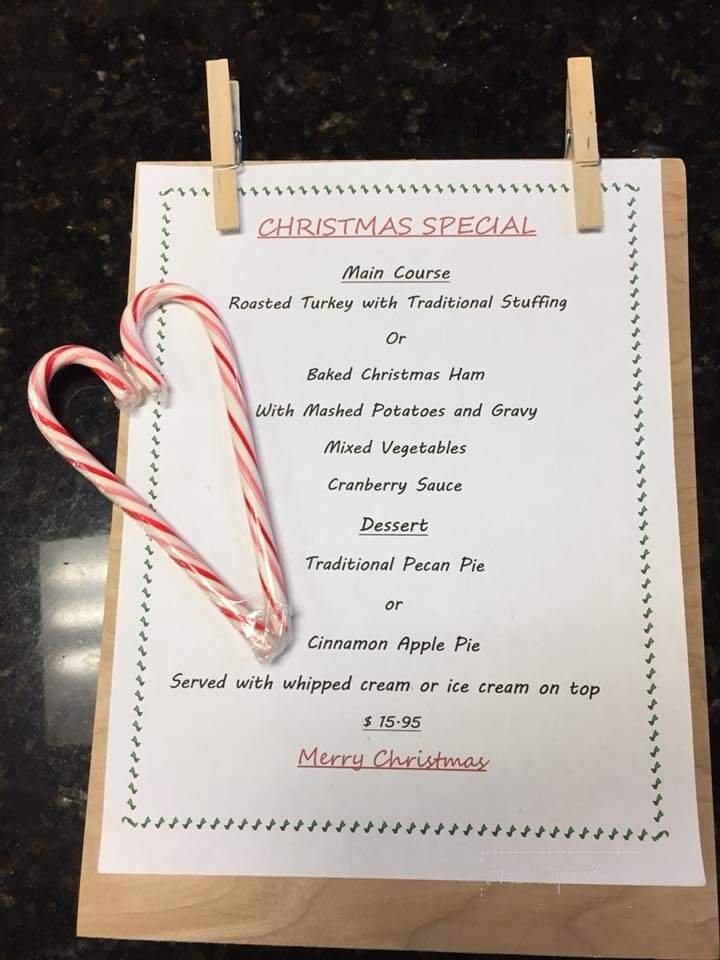 CHRISTMAS SPECIAL
Main Course
Roasted Turkey with Traditional Stuffing
Or
Baked Christmas Ham
With Mashed Potatoes and Gravy
Mixed Vegetables
Cranberry Sauce
Dessert
Traditional Pecan Pie
or
Cinnamon Apple Pie
Served with whipped cream or ice cream on top
$ 15.95
Merry Christmas